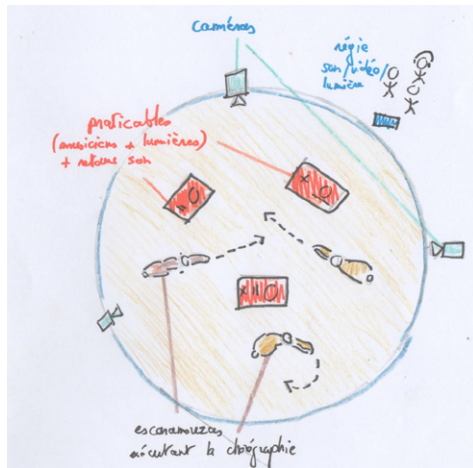 caméras
régie
son/vidéo/
lumière
praticables
(musiciens + lumières)
+ retours son
escaramouzas
exécutant la chorégraphie